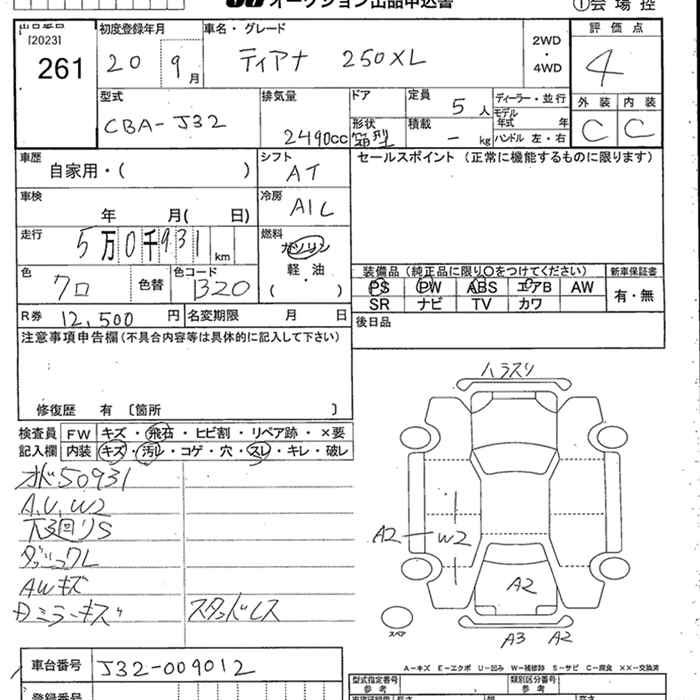 オークション出品申込書
①会場控
出品番号 初度登録年月 車名・グレード 2WD ・ 4WD 評価点
[2023]
261 20 9月 ティアナ 250XL 4
型式 排気量 ドア 定員 5人 ディーラー・並行 外装 内装
CBA-J32 2490cc 形状 箱型 積載 - kg モデル年式 年 ハンドル 左・右 C C
車歴 シフト セールスポイント (正常に機能するものに限ります)
自家用・( ) AT
車検 冷房
年 月( 日)
走行 燃料
5万0千931km ガソリン
色 色替 色コード 軽・油
クロ B20 ( )
装備品 (純正品に限り○をつけてください) 新車保証書
PS PW ABS エアB AW 有・無
SR ナビ TV カワ
R券 12,500円 名変期限 月 日 後日品
注意事項申告欄(不具合内容等は具体的に記入して下さい)
修復歴 有 [箇所 ]
検査員 FW キズ・飛石・ヒビ割・リペア跡・×要
記入欄 内装 キズ・汚レ・コゲ・穴・スレ・キレ・破レ
ハラスリ
50931
A,U,W2
下廻リS
AWキズ
ミラーキズ スタッドレス
A2 W2
A2
スペア
A3 A2
A-キズ E-エクボ U-凹み W-補修跡 S-サビ C-腐食 XX-交換済
車台番号 J32-009012
型式指定番号 類別区分番号
参考 参考
登録番号